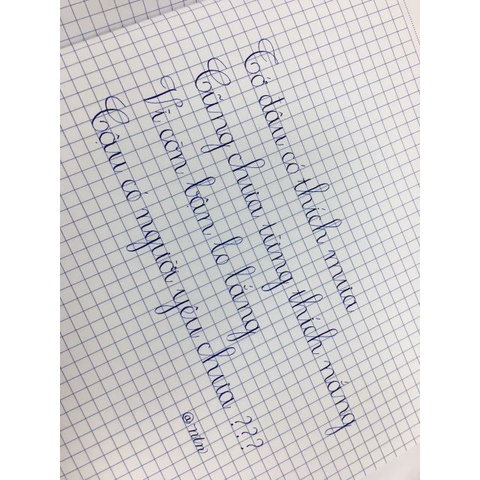 Cớ đâu có thích mưa
Cũng chưa từng thích nắng
Vì còn bận lo lắng
Cậu có người yêu chưa ???
@ntm